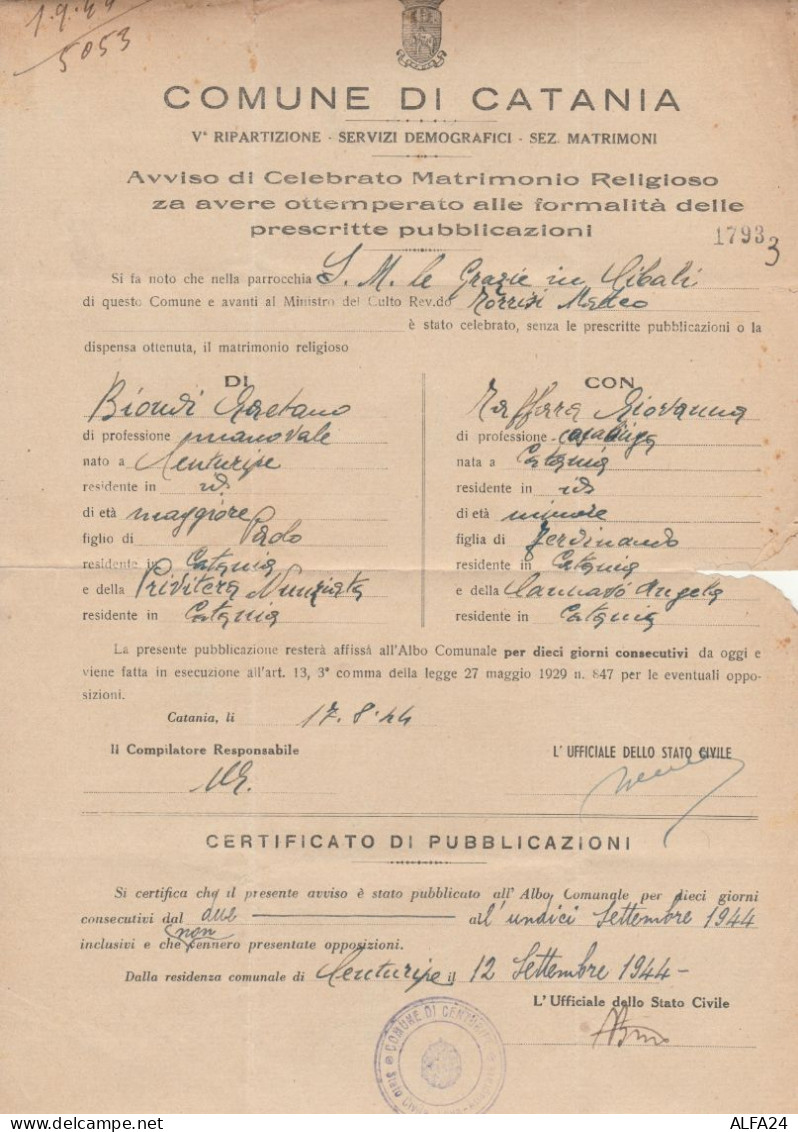 1.9.44
5053
COMUNE DI CATANIA
Vª RIPARTIZIONE - SERVIZI DEMOGRAFICI - SEZ. MATRIMONI
Avviso di Celebrato Matrimonio Religioso
za avere ottemperato alle formalità delle
prescritte pubblicazioni
17933
Si fa noto che nella parrocchia S. M. le Grazie in Cibali
di questo Comune e avanti al Ministro del Culto Rev.do Torrisi Matteo
è stato celebrato, senza le prescritte pubblicazioni o la
dispensa ottenuta, il matrimonio religioso
DI
Biondi Gaetano
di professione manovale
nato a Centuripe
residente in id
di età maggiore
figlio di Paolo
residente in Catania
e della Privitera Nunziata
residente in Catania
CON
Raffara Giovanna
di professione casalinga
nata a Catania
residente in id
di età minore
figlia di Ferdinando
residente in Catania
e della Cannavò Angela
residente in Catania
La presente pubblicazione resterà affissa all'Albo Comunale per dieci giorni consecutivi da oggi e
viene fatta in esecuzione all'art. 13, 3º comma della legge 27 maggio 1929 n. 847 per le eventuali oppo-
sizioni.
Catania, li 17.8.44
Il Compilatore Responsabile
L'UFFICIALE DELLO STATO CIVILE
CERTIFICATO DI PUBBLICAZIONI
Si certifica che il presente avviso è stato pubblicato all'Albo Comunale per dieci giorni
consecutivi dal due all'undici Settembre 1944
non
inclusivi e che vennero presentate opposizioni.
Dalla residenza comunale di Centuripe il 12 Settembre 1944-
L'Ufficiale dello Stato Civile
COMUNE DI CENTURIPE
STATO CIVILE
ALFA24